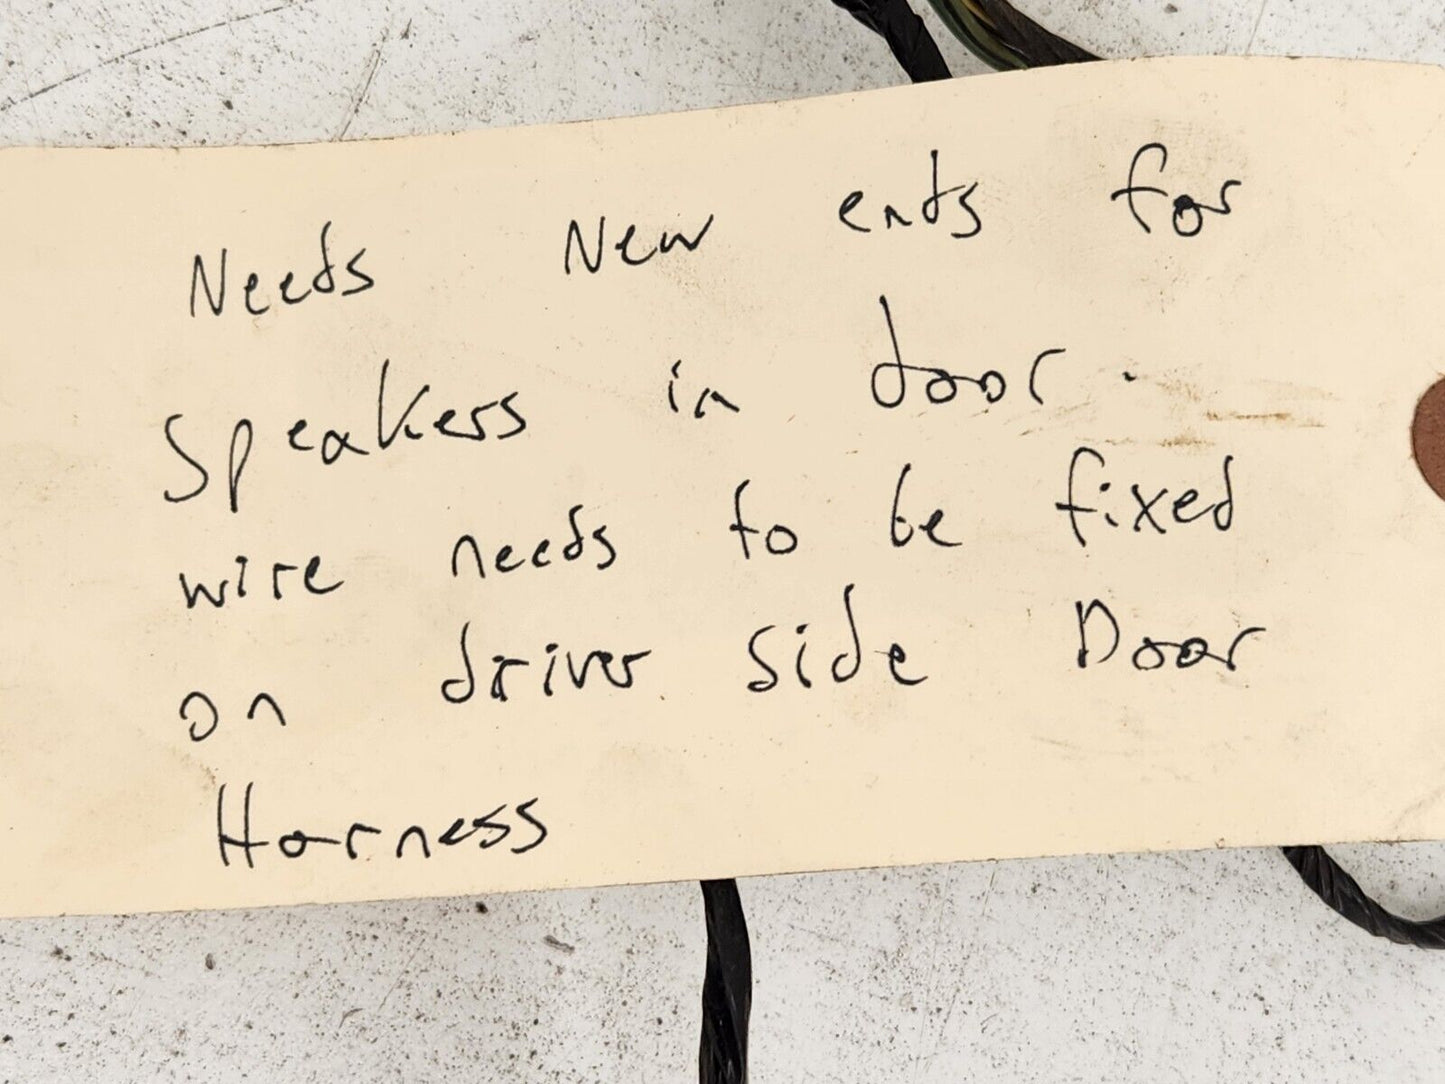 Needs New ends for
Speakers in door.
wire needs to be fixed
on driver side Door
Harness